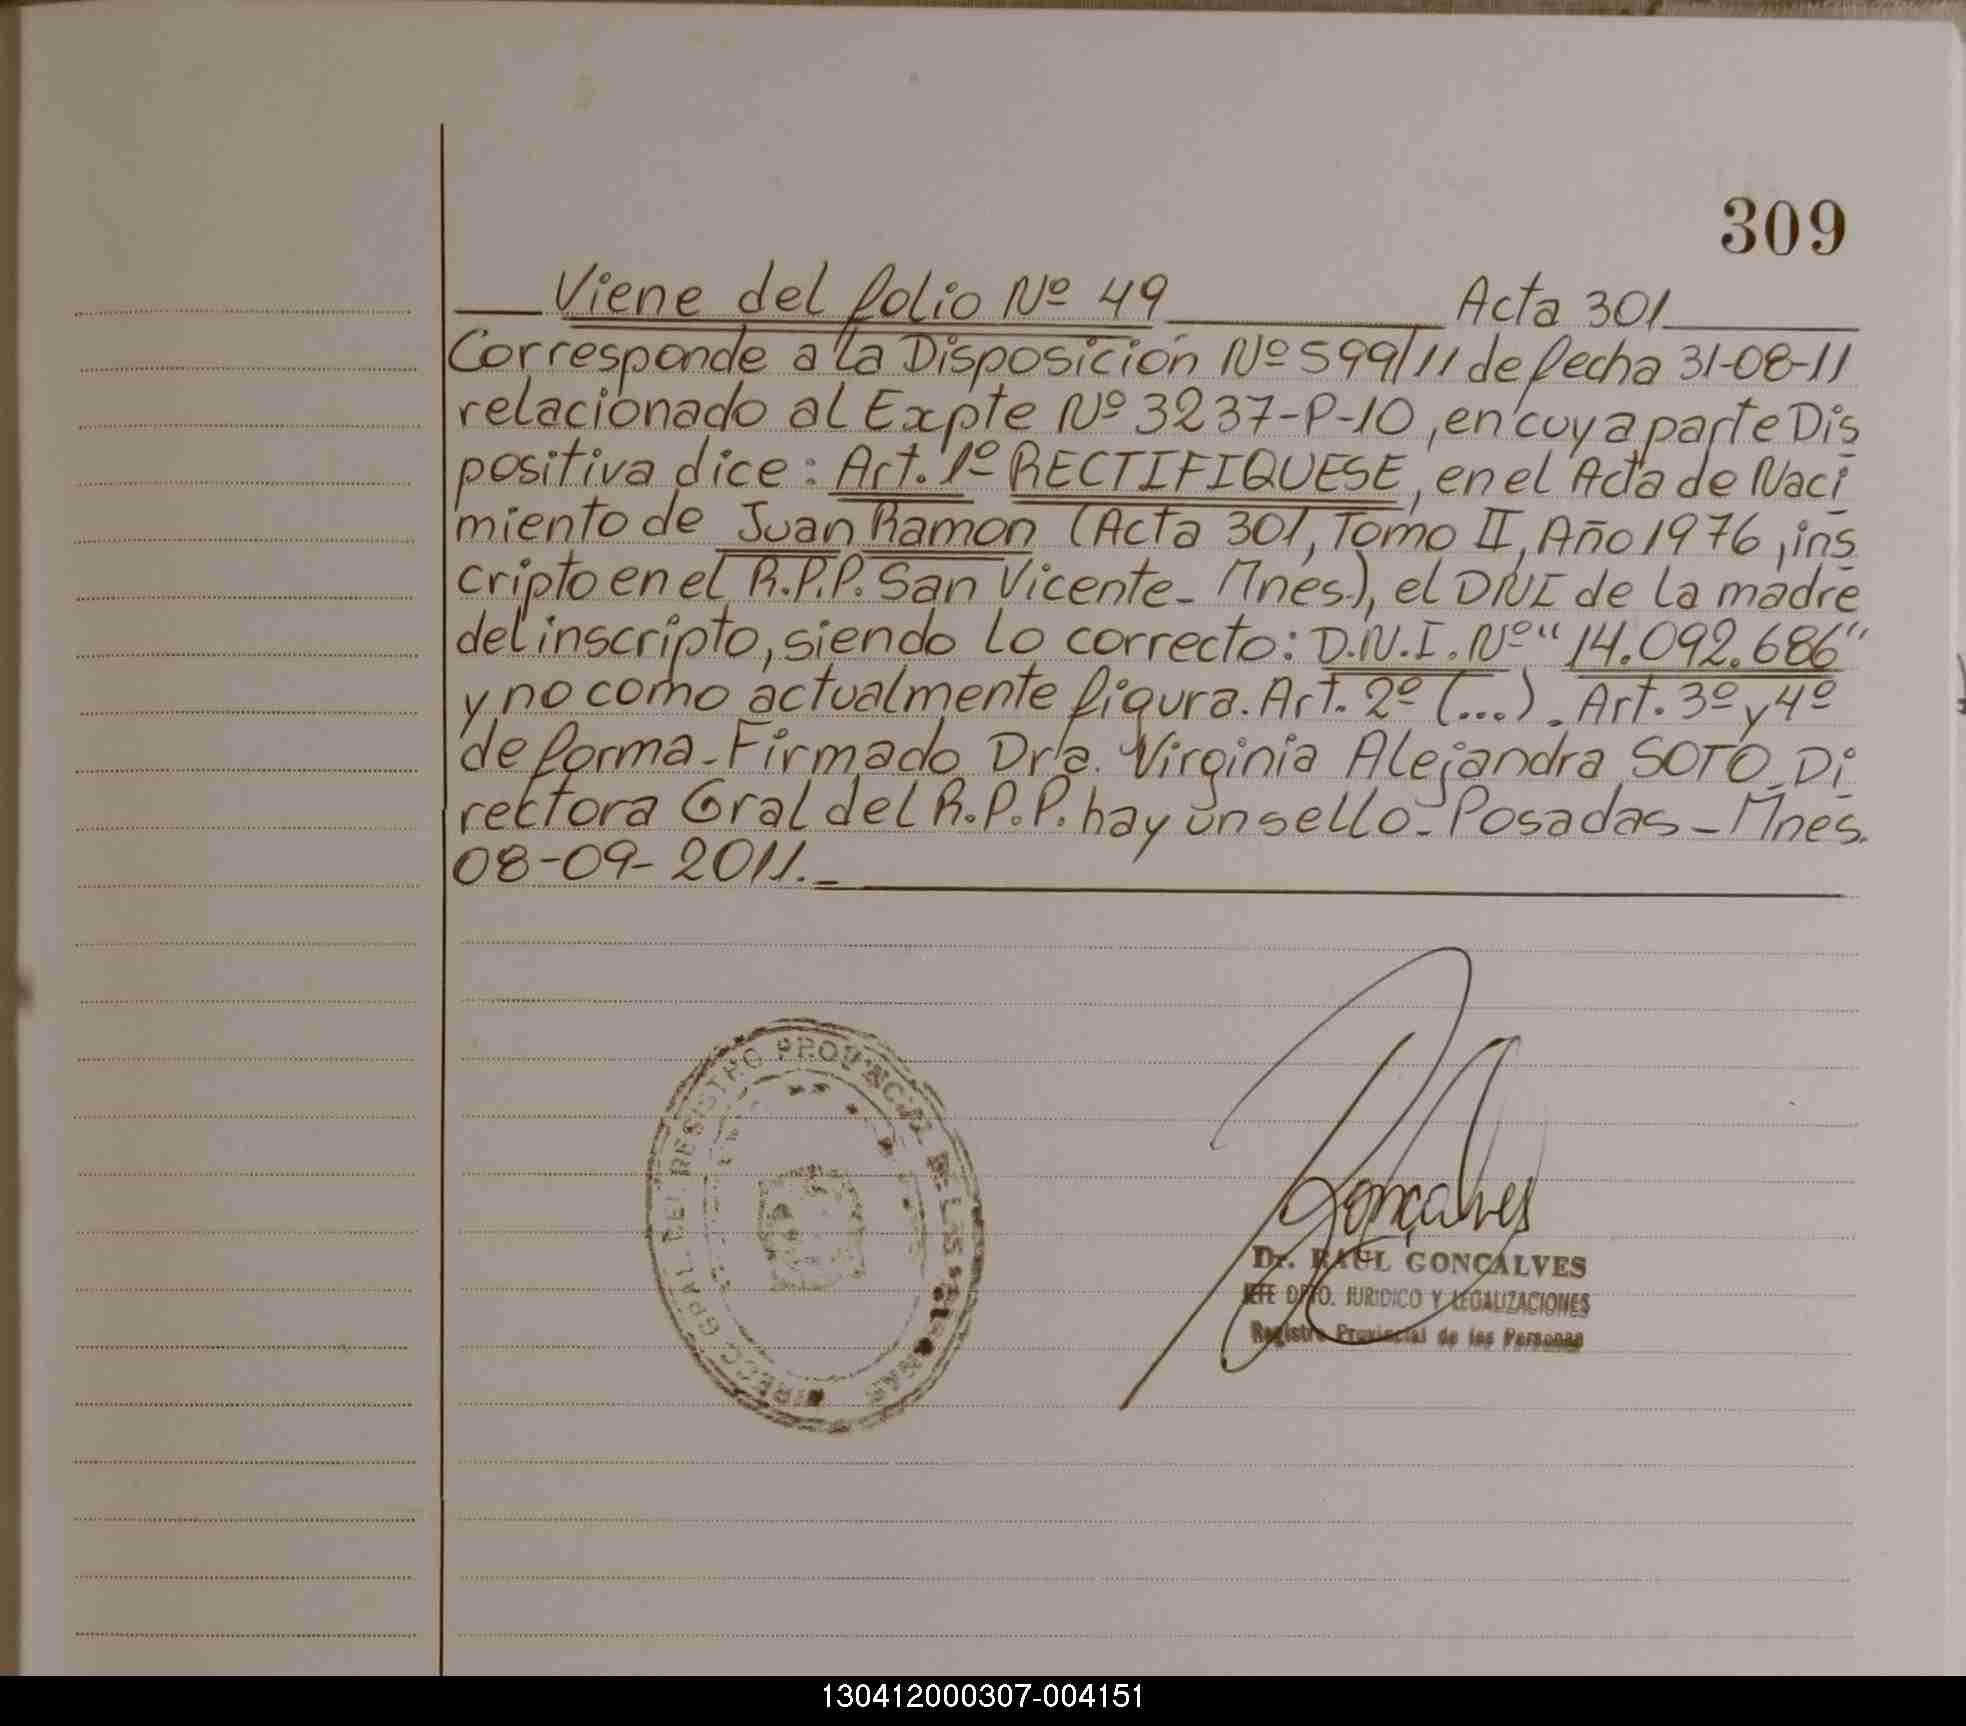 309
Viene del folio Nº 49 Acta 301
Corresponde a la Disposición Nº 599/11 de fecha 31-08-11
relacionado al Expte Nº 3237-P-10, en cuya parte Dis
positiva dice: Art. 1º RECTIFIQUESE, en el Acta de Naci
miento de Juan Ramon (Acta 301, Tomo II, Año 1976, ins
cripto en el R.P.P. San Vicente - Mnes.), el DNI de la madre
del inscripto, siendo lo correcto: D.N.I. Nº "14.092.686"
y no como actualmente figura. Art. 2º (...). Art. 3º y 4º
de forma - Firmado Dra. Virginia Alejandra SOTO Di
rectora Gral del R.P.P. hay un sello - Posadas - Mnes.
08-09-2011.-
DIRECC. GRAL. DEL REGISTRO PROVINCIAL DE LAS PERSONAS
Gonçalves
Dr. RAUL GONÇALVES
JEFE DPTO. JURIDICO Y LEGALIZACIONES
Registro Provincial de las Personas
130412000307-004151